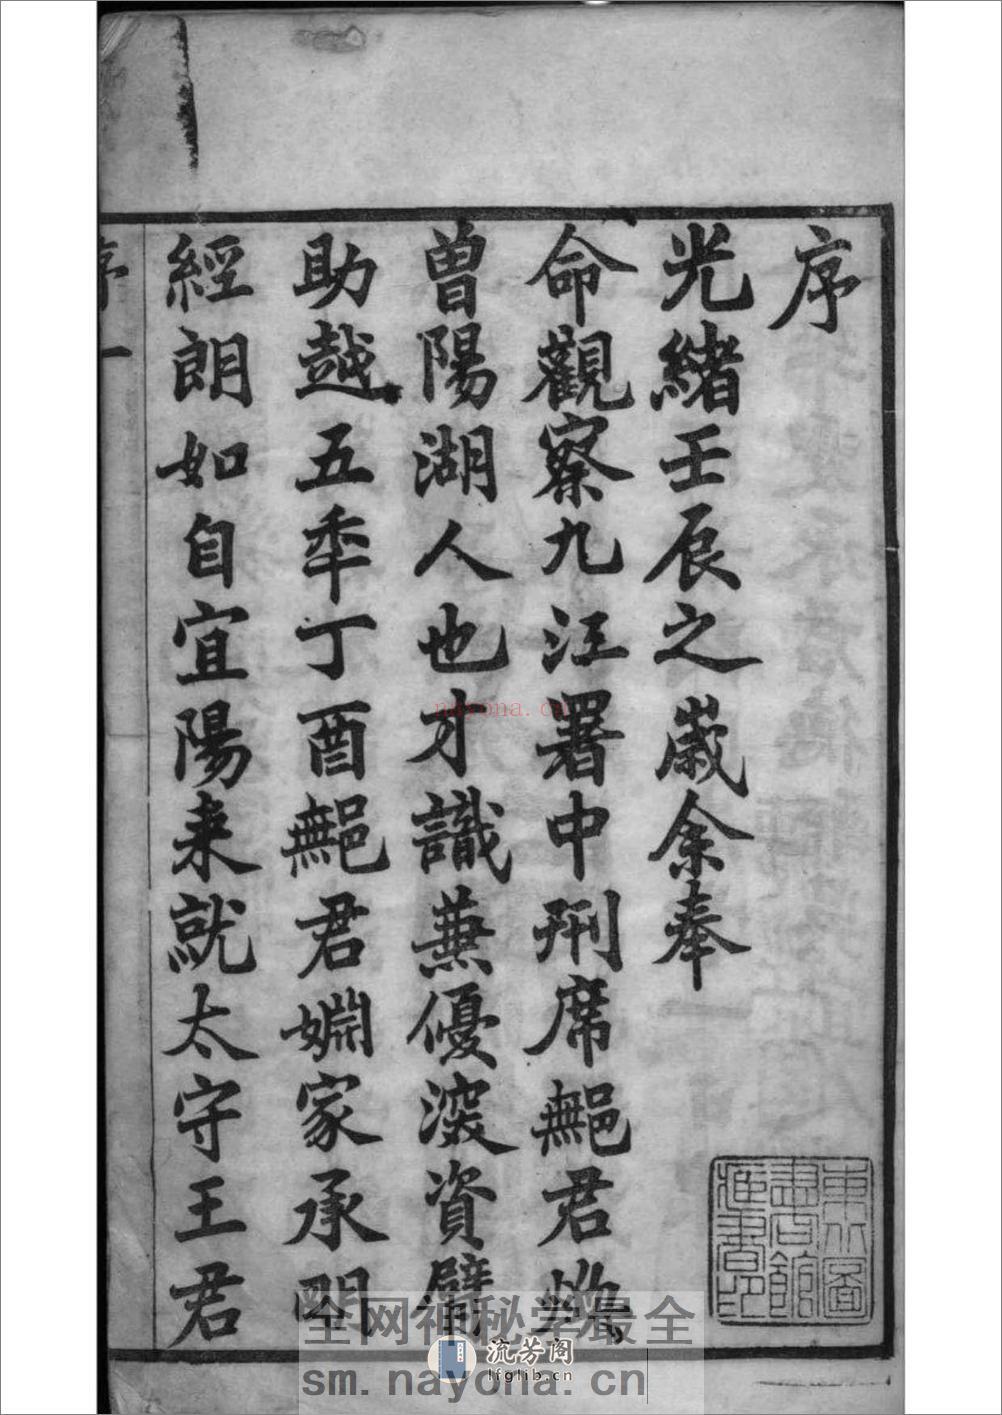 序
光緒壬辰之歲余奉
命觀察九江署中刑席鄦君
曾陽湖人也才識兼優深資臂
助越五秊丁酉鄦君婣家承朙
經朗如自宜陽来就太守王君
序一
東北圖
書館
藏書印
nayona.cn
全网神秘学最全
流芳阁
lfglib.cn
sm.nayona.cn